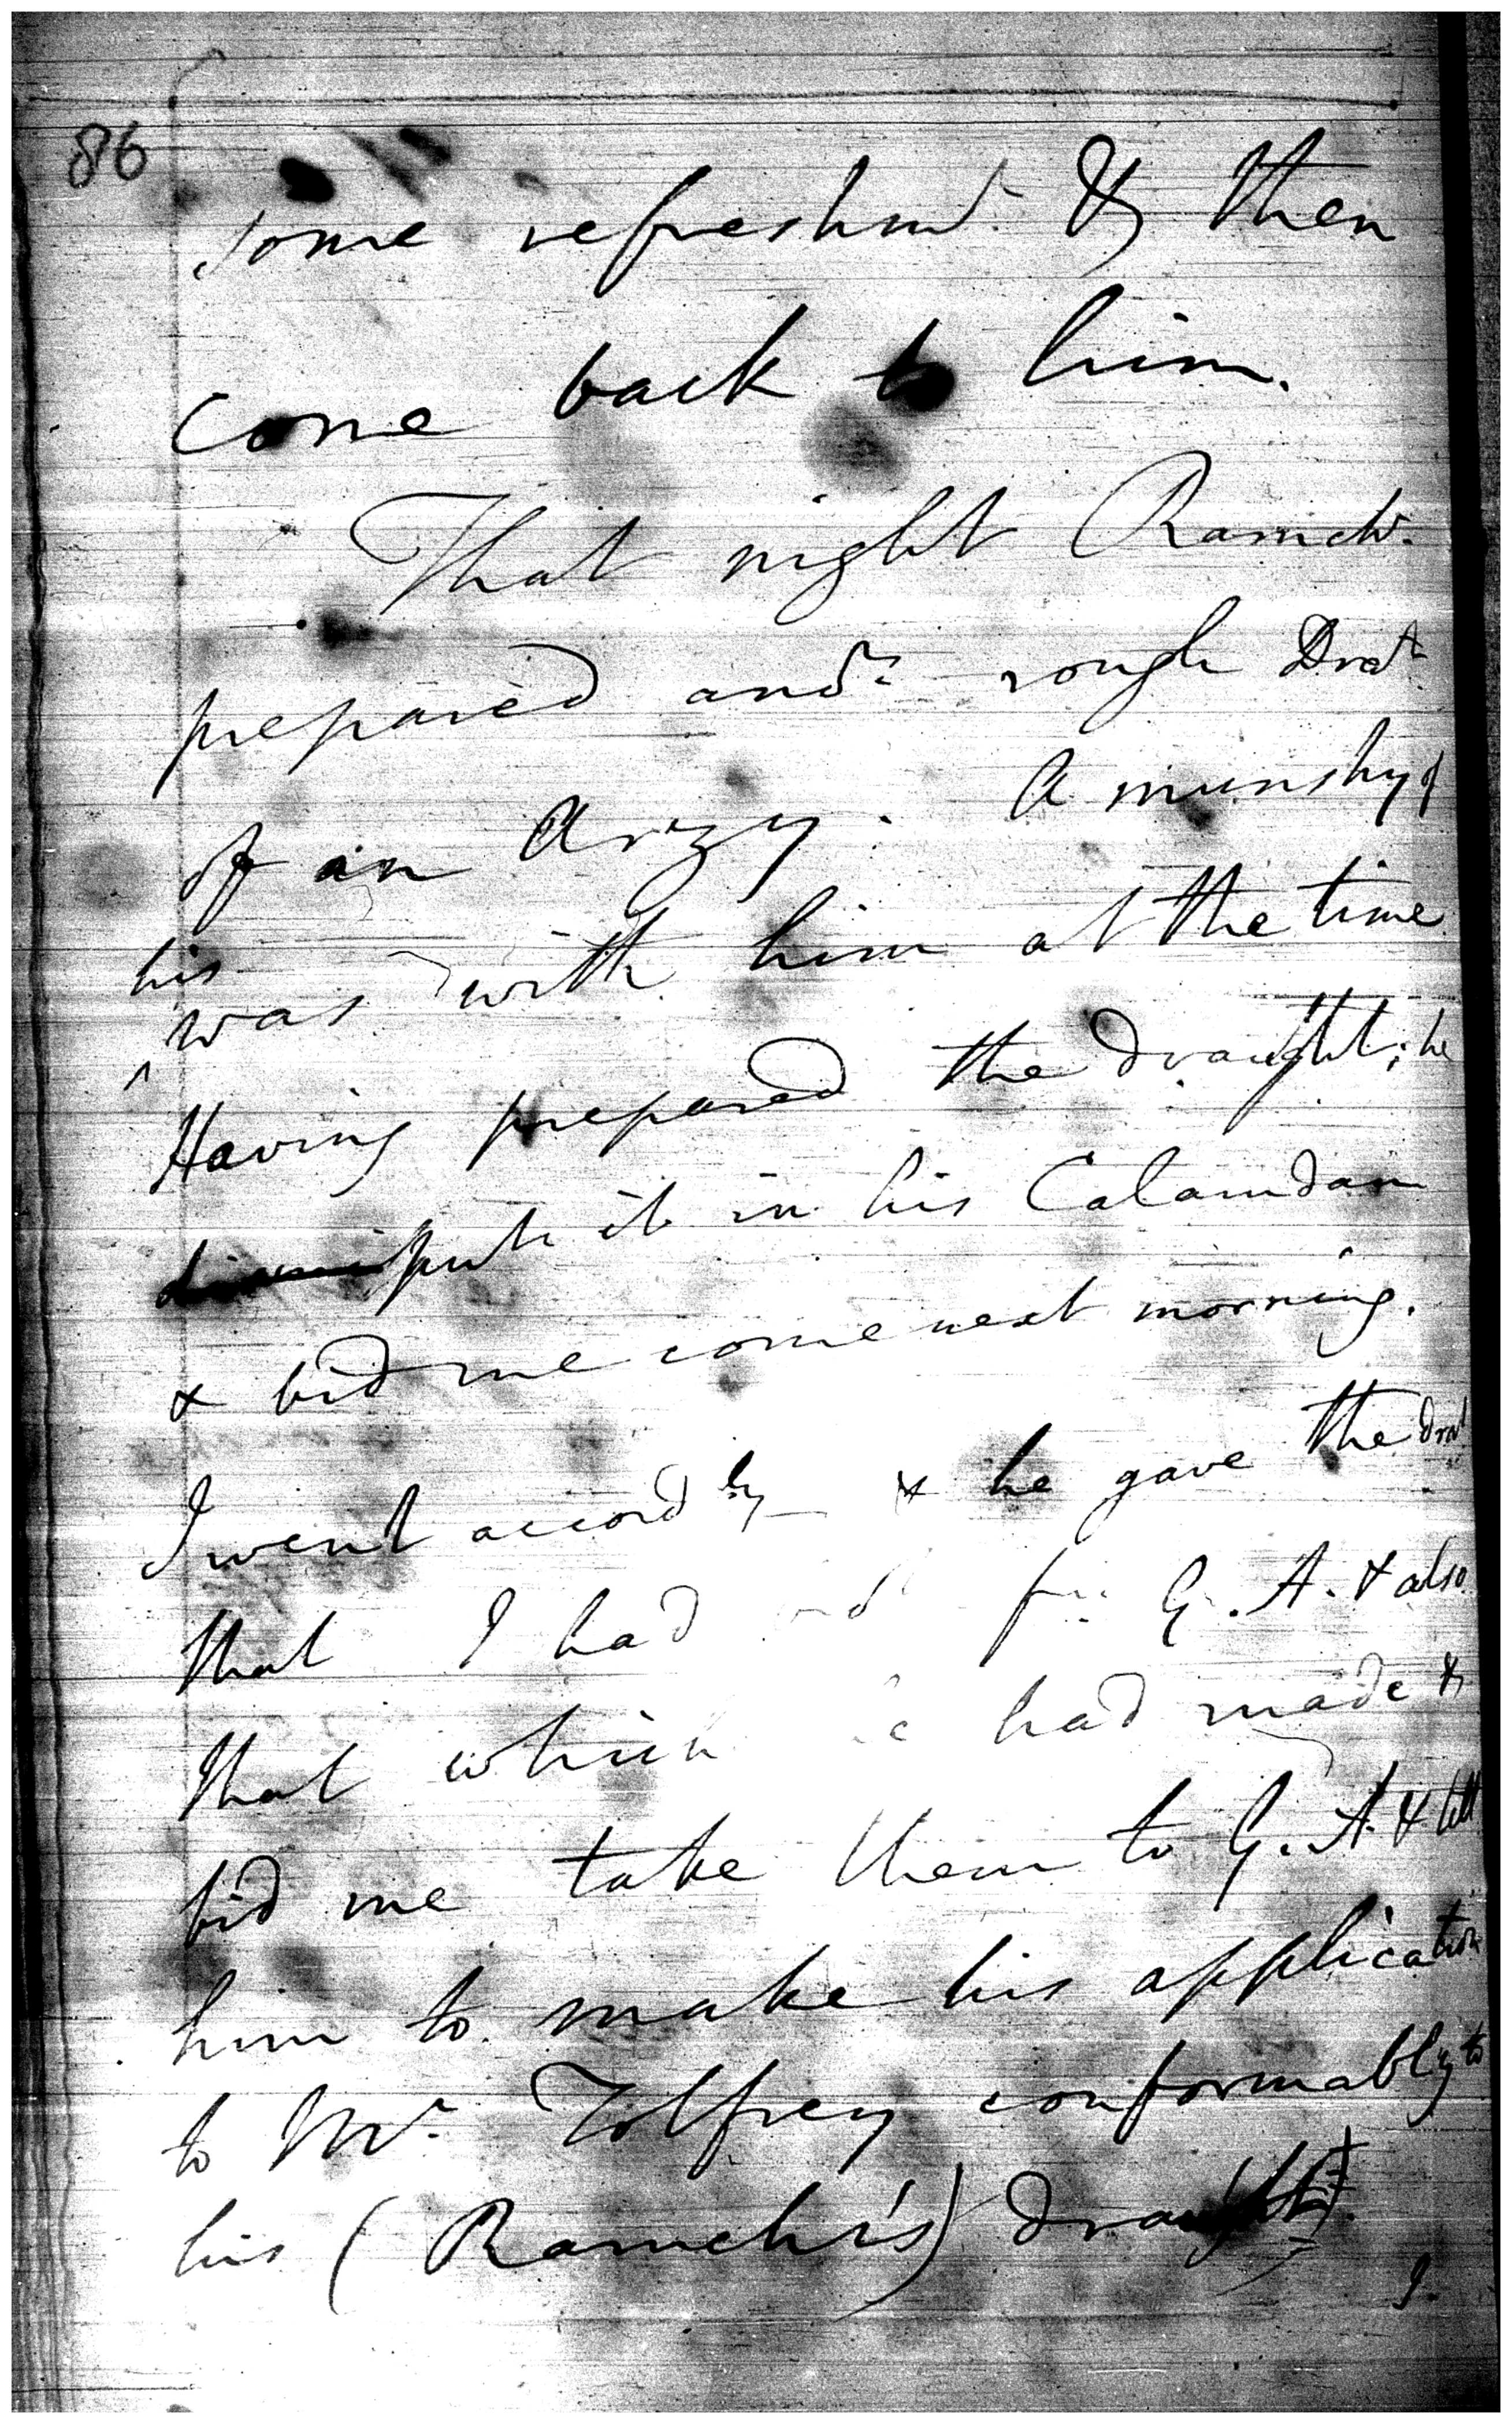 86
some refreshmt. & then
come back to him.
That night Ramch.
prepared anor. rough Drat.
of an Arzy. A munshy of
his
was with him at the time
^
Having prepared the draught; he
put it in his Calamdan
& bid me come next morning.
I went accordly & he gave the drat
that I had G. A. & also
that which had made &
bid me take them to G. A. & tell
him to make his application
to Mr. Tolfrey conformably to
his (Ramch's) draught.
I.